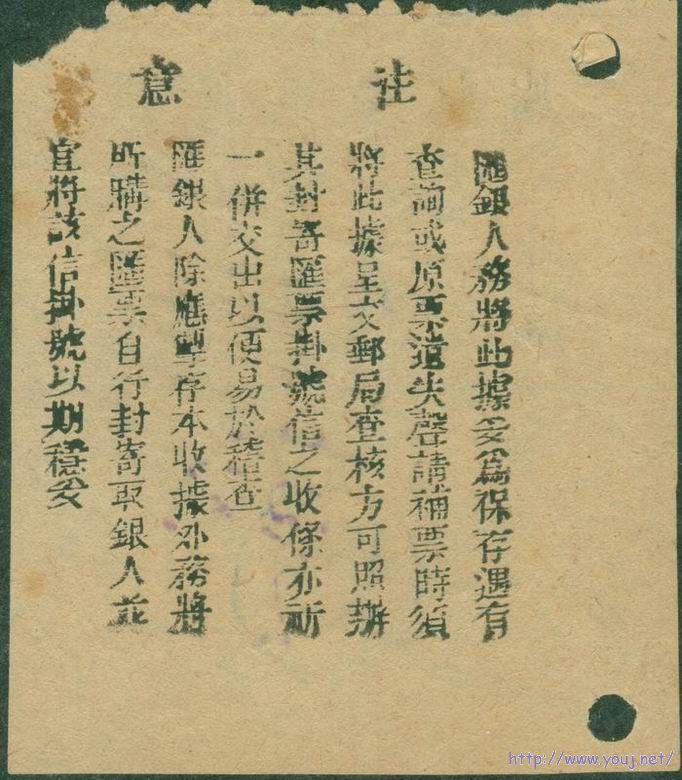 注意
匯銀人務將此據妥為保存遇有
查詢或原票遺失聲請補票時須
將此據呈交郵局查核方可照辦
其封寄匯票掛號信之收條亦祈
一併交出以便易於稽查
匯銀人除應擎存本收據外務將
所購之匯票自行封寄取銀人並
宜將該信掛號以期穩妥
http://www.youj.net/